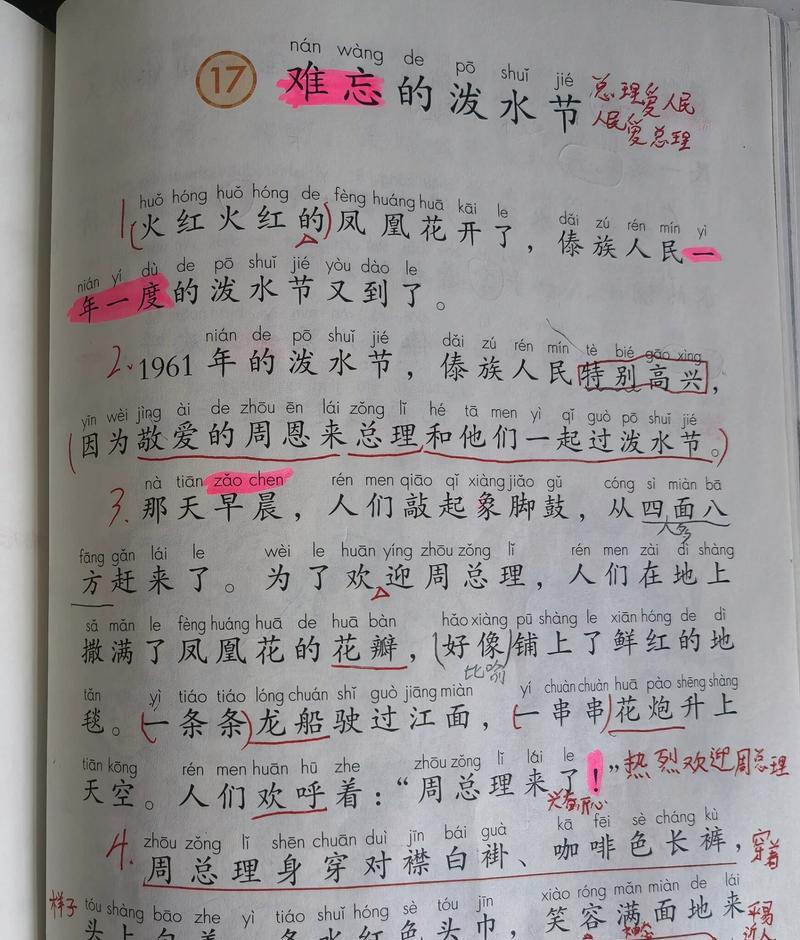 nán wàng de pō shuǐ jié
17 难忘的泼水节
总理爱人民
人民爱总理
huǒ hóng huǒ hóng de fèng huáng huā kāi le dǎi zú rén mín yì
1 (火红火红的)凤凰花开了，傣族人民一
nián yí dù de pō shuǐ jié yòu dào le
年一度的泼水节又到了。
nián de pō shuǐ jié dǎi zú rén mín tè bié gāo xìng
2. 1961年的泼水节，傣族人民特别高兴，
yīn wèi jìng ài de zhōu ēn lái zǒng lǐ hé tā men yì qǐ guò pō shuǐ jié
(因为敬爱的周恩来总理和他们一起过泼水节。)
nà tiān zǎo chen rén men qiāo qǐ xiàng jiǎo gǔ cóng sì miàn bā
3. 那天早晨，人们敲起象脚鼓，从四面八
人多
fāng gǎn lái le wèi le huān yíng zhōu zǒng lǐ rén men zài dì shàng
方赶来了。为了欢迎周总理，人们在地上
sǎ mǎn le fèng huáng huā de huā bàn hǎo xiàng pū shàng le xiān hóng de dì
撒满了凤凰花的花瓣，(好像)铺上了鲜红的地
比喻
tǎn yì tiáo tiáo lóng chuán shǐ guò jiāng miàn yí chuàn chuàn huā pào shēng shàng
毯。(一条条)龙船驶过江面，(一串串)花炮升上
tiān kōng rén men huān hū zhe zhōu zǒng lǐ lái le
天空。人们欢呼着：“周总理来了！”热烈欢迎周总理
兴奋开心
zhōu zǒng lǐ shēn chuān duì jīn bái guà kā fēi sè cháng kù
4. 周总理身穿对襟白褂、咖啡色长裤，穿着
样子 tóu shàng bāo zhe yì tiáo shuǐ hóng sè tóu jīn xiào róng mǎn miàn de lái
头上包着一条水红色头巾，笑容满面地来 平易